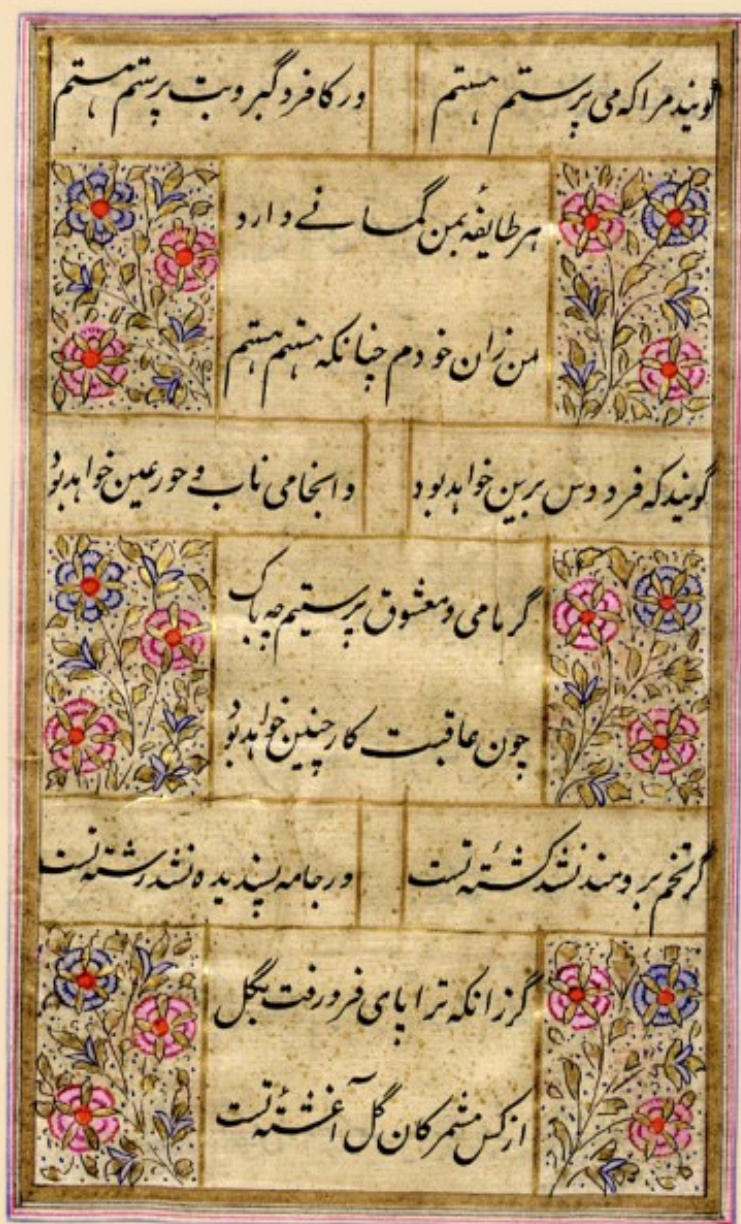 گویند مرا که می پرستم هستم
ور کافر و گبر و بت پرستم هستم
هر طایفهٔ بمن گمانے دارد
من زان خودم چنانکه هستم هستم
گویند که فردوس برین خواهد بود
وانجا می ناب و حور عین خواهد بود
گر ما می و معشوق پرستیم چه باک
چون عاقبت کار چنین خواهد بود
گر تخم برومند نشد کشتهٔ تست
ور جامه پسندیده نشد رشتهٔ تست
گر زانکه ترا پای فرو رفت بگل
از کس مشمر کان گل آغشتهٔ تست